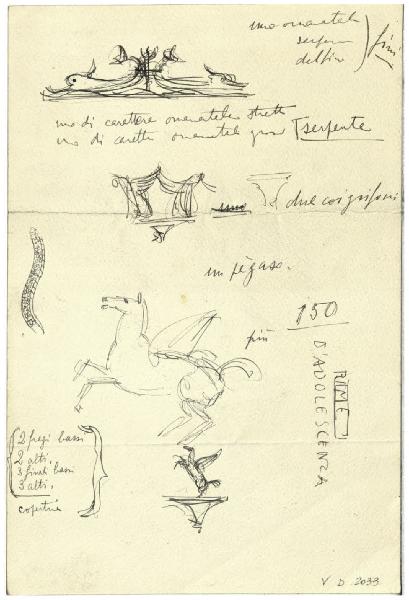 uno ornamentale
serpen
delfino
fini
uno di carattere ornamentale stretto
uno di caratt. ornamentale
serpente
due coi grifoni
un pégaso.
150
più
RIME
D'ADOLESCENZA
2 fregi bassi
2 alti.
3 finali bassi
3 alti.
copertina
V D 2033